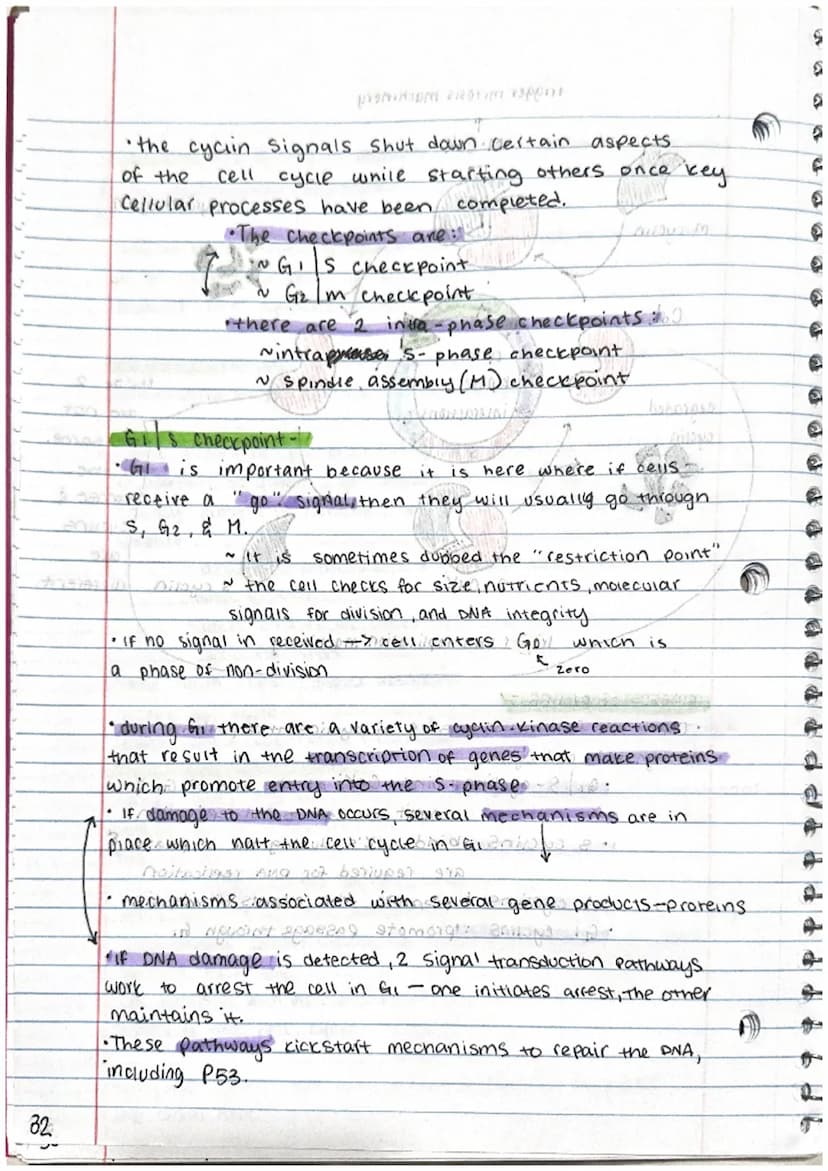 • the cyclin signals shut down certain aspects
of the cell cycle while starting others once key
cellular processes have been completed.
• The checkpoints are:
~ G1|S checkpoint
~ G2|M checkpoint
• there are 2 intra-phase checkpoints:
~ intra S-phase checkpoint
~ spindle assembly (M) checkpoint
G1|S checkpoint-
• G1 is important because it is here where if cells
receive a "go" signal, then they will usually go through
S, G2, & M.
~ It is sometimes dubbed the "restriction point"
~ the cell checks for size, nutrients, molecular
signals for division, and DNA integrity
• If no signal in received → cell enters G0 which is
a phase of non-division
zero
• during G1 there are a variety of cyclin-kinase reactions
that result in the transcription of genes that make proteins
which promote entry into the S-phase
• If damage to the DNA occurs, several mechanisms are in
place which halt the cell cycle in G1
• mechanisms associated with several gene products-proteins
• If DNA damage is detected, 2 signal transduction pathways
work to arrest the cell in G1 — one initiates arrest, the other
maintains it.
• These pathways kickstart mechanisms to repair the DNA,
including P53.
32